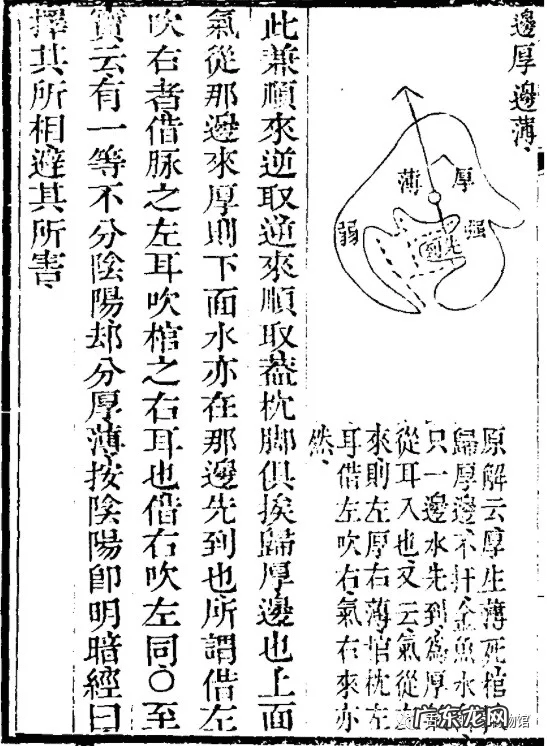 邊厚邊薄、
薄
厚
弱
强
到先
原解云厚生薄死棺
歸厚邊不扦金魚水
只一邊水先到為厚
從耳入也又云氣從左
來則左厚右薄棺枕左
耳借左吹右氣右來亦
然、
此兼順來逆取逆來順取葢枕脚俱挨歸厚邊也上面
氣從那邊來厚則下面水亦在那邊先到也所謂借左
吹右者借脉之左耳吹棺之右耳也借右吹左同○至
寳云有一等不分陰陽却分厚薄按陰陽卽明暗經曰
擇其所相避其所害、
广东龙网
物馆